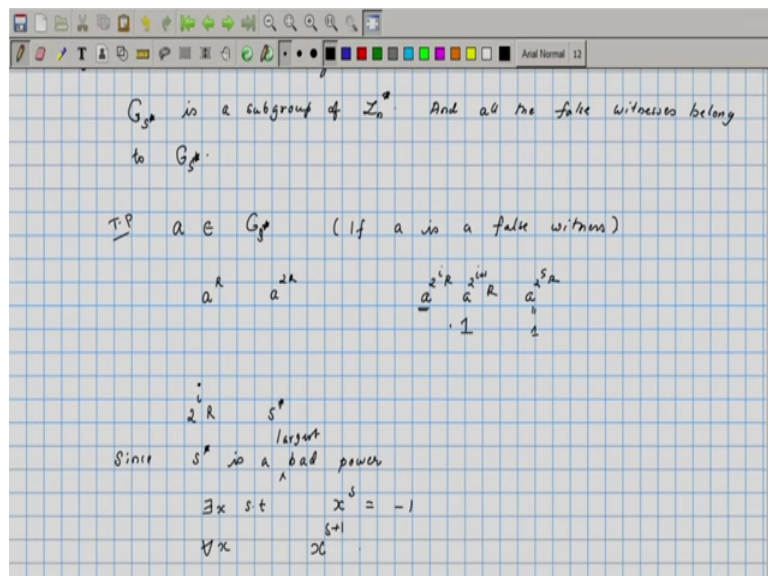 Arial Normal 12
G_{s*} is a subgroup of Z_n^*. And all the false witnesses belong
to G_{s*}.
T.P a ∈ G_{s*} (If a is a false witness)
a^R a^{2R} a^{2^i R} a^{2^{i+1} R} a^{2^s R}
1 " 1
2^i R s*
largest
Since s* is a ^ bad power
∃x s.t x^s = -1
∀x x^{s+1}